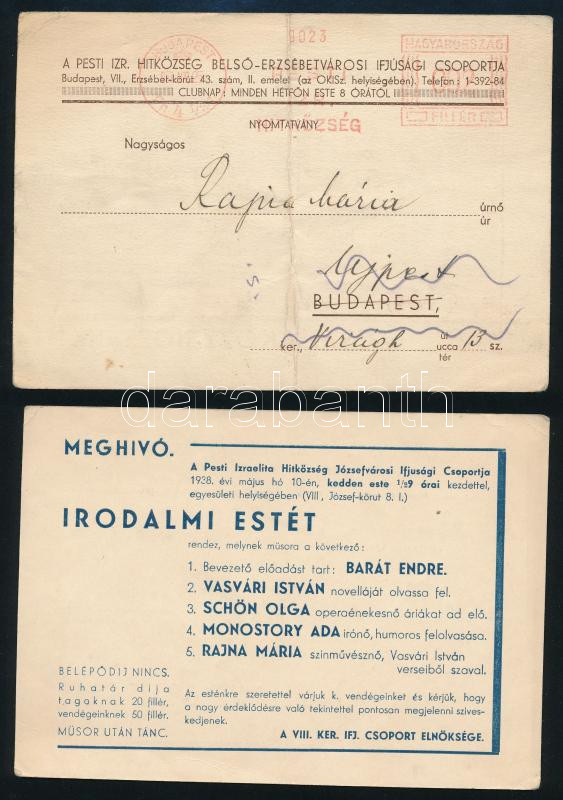 9023
BUDAPEST
MAGYARORSZÁG
FILLÉR
A PESTI IZR. HITKÖZSÉG BELSŐ-ERZSÉBETVÁROSI IFJUSÁGI CSOPORTJA
Budapest, VII., Erzsébet-körút 43. szám, II. emelet (az OKISz. helyiségében). Telefon: 1-392-84
CLUBNAP: MINDEN HÉTFŐN ESTE 8 ÓRÁTÓL
NYOMTATVÁNY
Nagyságos
Rajna Mária
úrnő
úr
Ujpest
BUDAPEST,
ker., Virágh
út
ucca 13 sz.
tér
darabanth
MEGHIVÓ.
A Pesti Izraelita Hitközség Józsefvárosi Ifjusági Csoportja
1938. évi május hó 10-én, kedden este 1/29 órai kezdettel,
egyesületi helyiségében (VIII., József-körut 8. I.)
IRODALMI ESTÉT
rendez, melynek müsora a következő:
1. Bevezető előadást tart: BARÁT ENDRE.
2. VASVÁRI ISTVÁN novelláját olvassa fel.
3. SCHÖN OLGA operaénekesnő áriákat ad elő.
4. MONOSTORY ADA irónő, humoros felolvasása.
5. RAJNA MÁRIA szinművésznő, Vasvári István
verseiből szaval.
BELÉPŐDIJ NINCS.
Ruhatár dija
tagoknak 20 fillér,
vendégeinknek 50 fillér.
MŰSOR UTÁN TÁNC.
Az esténkre szeretettel várjuk k. vendégeinket és kérjük, hogy
a nagy érdeklődésre való tekintettel pontosan megjelenni szives-
kedjenek.
A VIII. KER. IFJ. CSOPORT ELNÖKSÉGE.